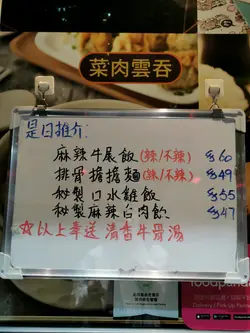 菜肉雲吞
是日推介:
麻辣牛尾飯(辣/不辣) $60
排骨擔擔麵(辣/不辣) $49
秘製口水雞飯 $55
秘製麻辣白肉飯 $47
☆以上幸送清香牛骨湯
foodpanda